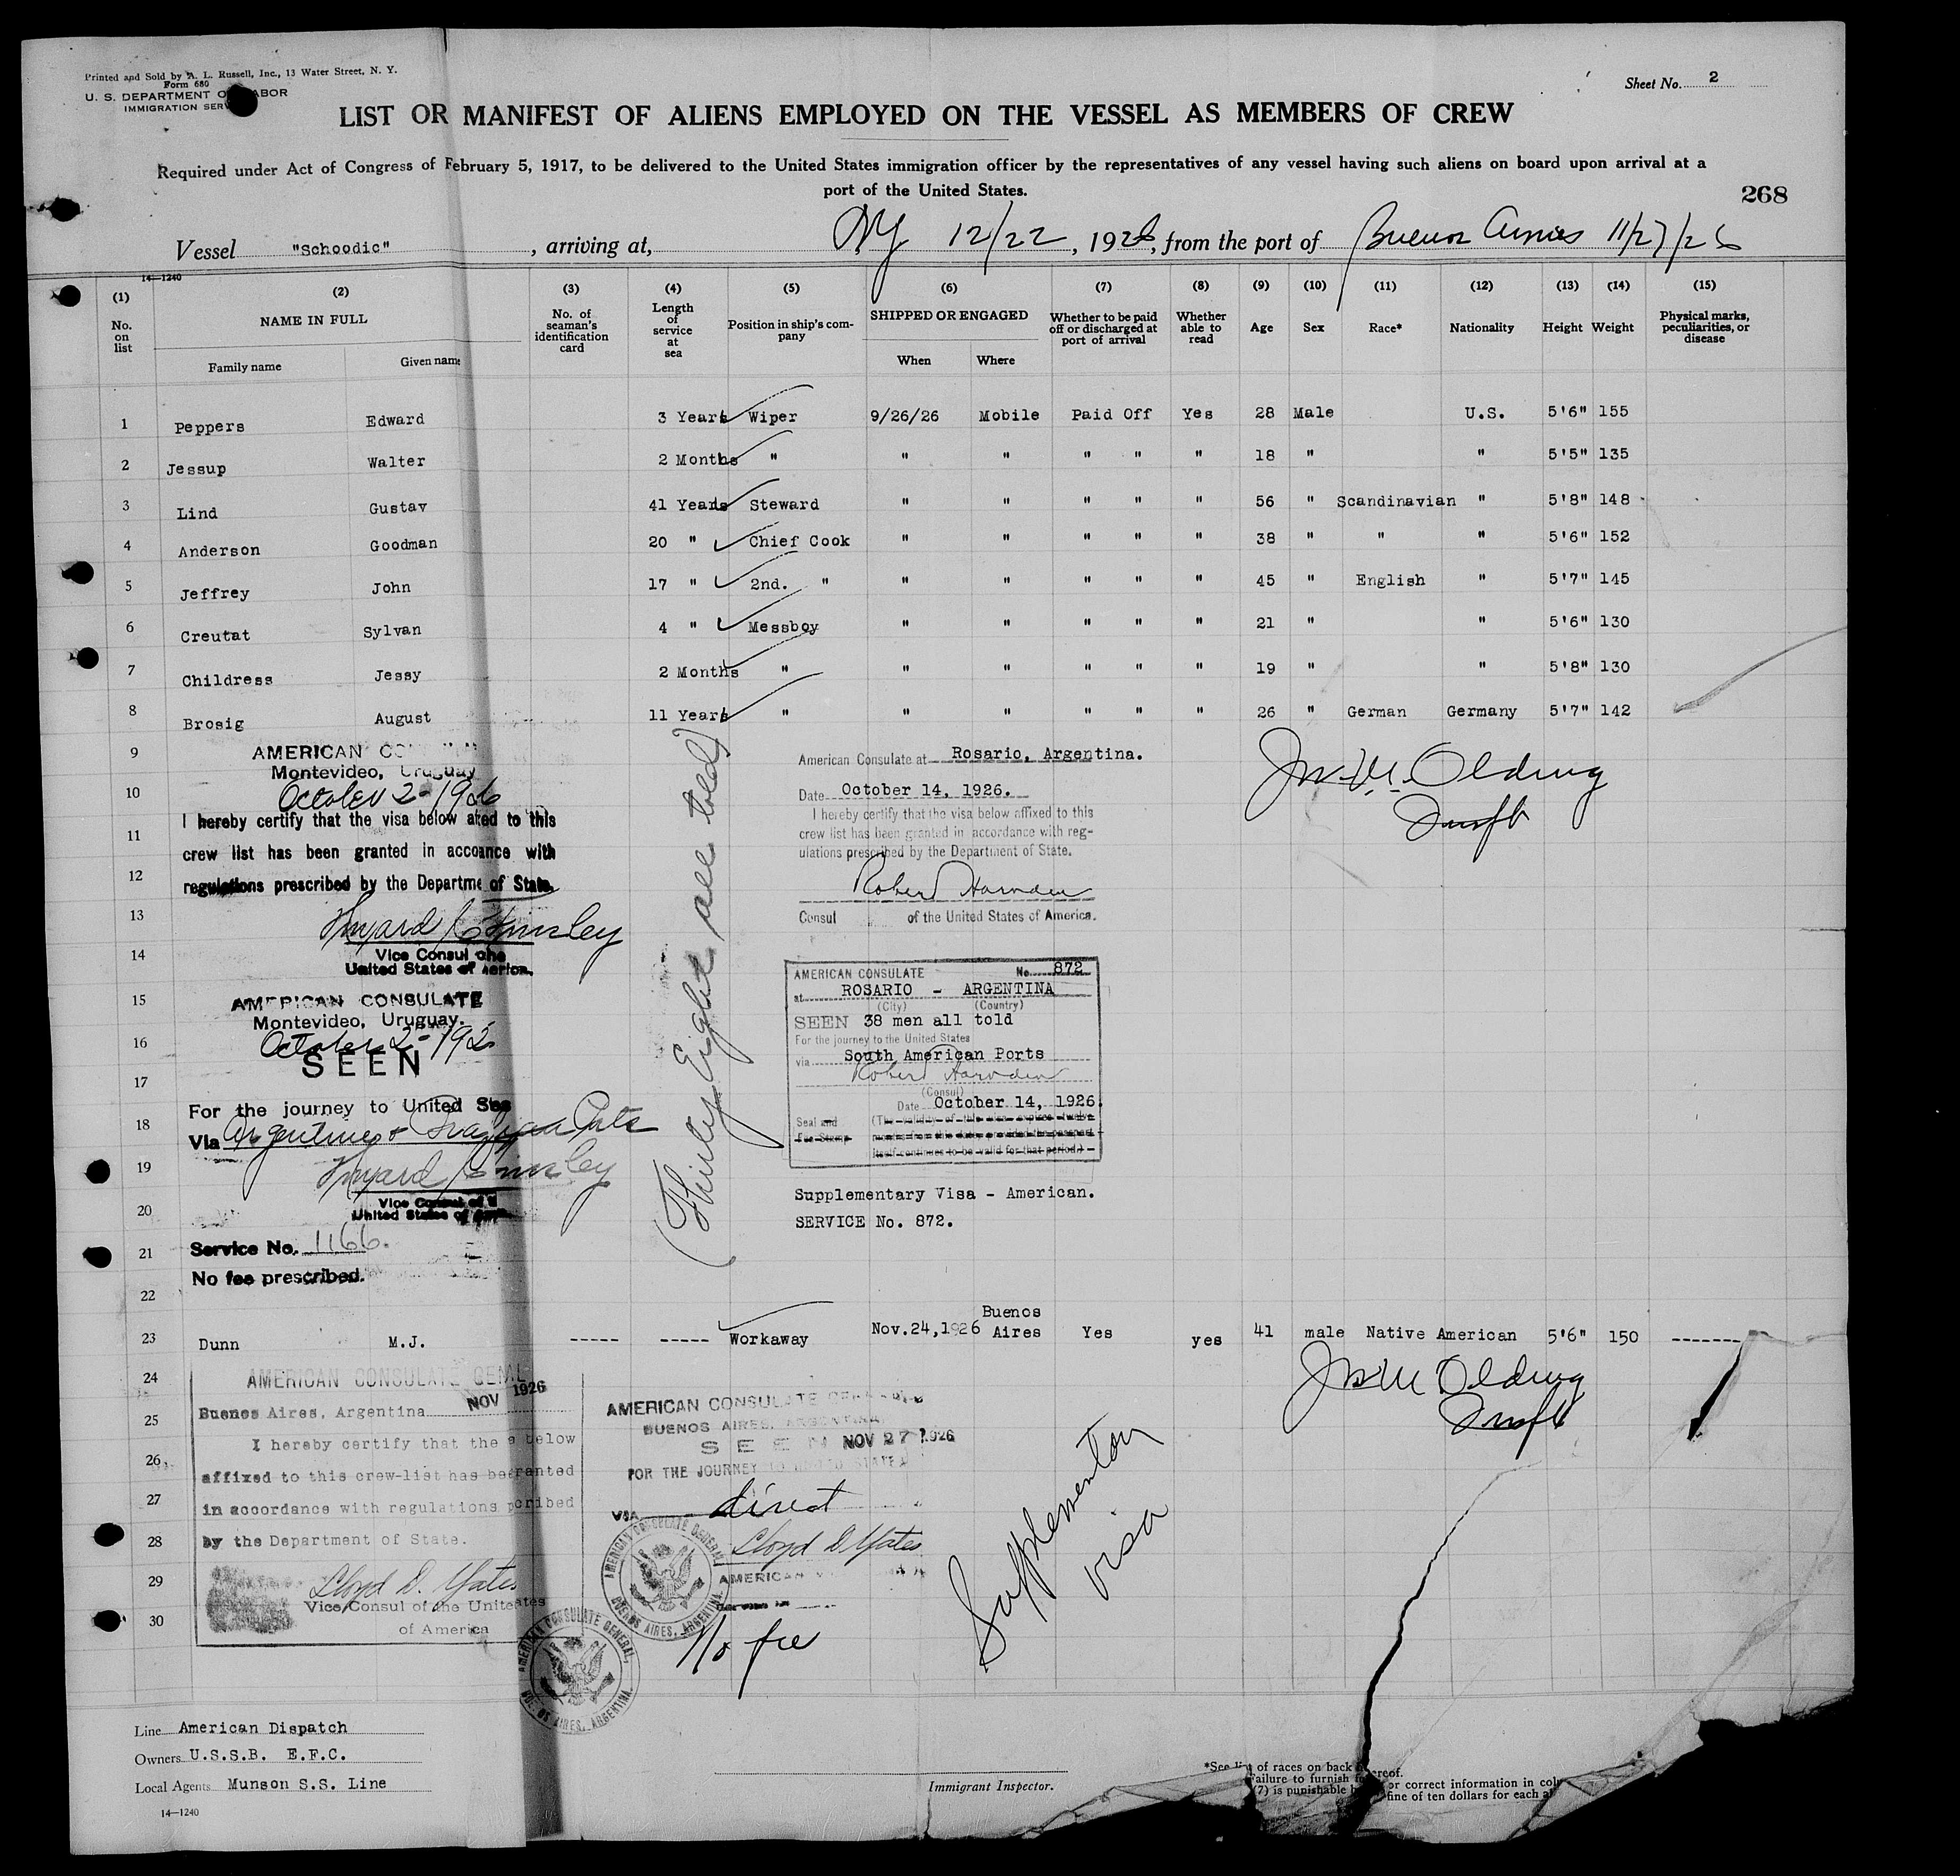 Printed and Sold by A. L. Russell, Inc., 13 Water Street, N. Y.
Form 680
U. S. DEPARTMENT OF LABOR
IMMIGRATION SERV
Sheet No. 2
LIST OR MANIFEST OF ALIENS EMPLOYED ON THE VESSEL AS MEMBERS OF CREW
Required under Act of Congress of February 5, 1917, to be delivered to the United States immigration officer by the representatives of any vessel having such aliens on board upon arrival at a
port of the United States.
268
Vessel "Schoodic", arriving at, NY 12/22, 1926, from the port of Buenos Aires 11/27/26
14—1240
(1) (2) (3) (4) (5) (6) (7) (8) (9) (10) (11) (12) (13) (14) (15)
No. on list NAME IN FULL No. of seaman's identification card Length of service at sea Position in ship's company SHIPPED OR ENGAGED Whether to be paid off or discharged at port of arrival Whether able to read Age Sex Race* Nationality Height Weight Physical marks, peculiarities, or disease
Family name Given name When Where
1 Peppers Edward 3 Years Wiper 9/26/26 Mobile Paid Off Yes 28 Male U.S. 5'6" 155
2 Jessup Walter 2 Months " " " " " " 18 " " 5'5" 135
3 Lind Gustav 41 Years Steward " " " " " 56 " Scandinavian " 5'8" 148
4 Anderson Goodman 20 " Chief Cook " " " " " 38 " " " 5'6" 152
5 Jeffrey John 17 " 2nd. " " " " " " 45 " English " 5'7" 145
6 Creutat Sylvan 4 " Messboy " " " " " 21 " " 5'6" 130
7 Childress Jessy 2 Months " " " " " " 19 " " 5'8" 130
8 Brosig August 11 Years " " " " " " 26 " German Germany 5'7" 142
9
10
11
12
13
14
15
16
17
18
19
20
21
22
AMERICAN CO
Montevideo, Uruguay
October 2-1926
I hereby certify that the visa below a ed to this
crew list has been granted in acco ance with
regulations prescribed by the Departme of State.
Vice Consul of the
United States of America.
AMERICAN CONSULATE
Montevideo, Uruguay.
October 2-192
SEEN
For the journey to United S
Via Argentine & Ports
Vice Consul of
United States of
Service No. 1166.
No fee prescribed.
(Thirty Eight all told)
American Consulate at Rosario, Argentina.
Date October 14, 1926.
I hereby certify that the visa below affixed to this
crew list has been granted in accordance with reg-
ulations prescribed by the Department of State.
Robert Harnden
Consul of the United States of America.
AMERICAN CONSULATE No. 872
at ROSARIO - ARGENTINA
(City) (Country)
SEEN 38 men all told
For the journey to the United States
via South American Ports
Robert Harnden
(Consul)
Date October 14, 1926.
Seal and (The validity of this visa expires twelve
Fee Stamp months from this date, provided the passport
itself continues to be valid for that period.)
Supplementary Visa - American.
SERVICE No. 872.
Jno M. Olding
Inspt
23 Dunn M.J. ----- ----- Workaway Nov.24,1926 Buenos Aires Yes yes 41 male Native American 5'6" 150 -------
Jno M Olding
Inspt
24
25
26
27
28
29
30
AMERICAN CONSULATE GENL
Buenos Aires, Argentina NOV 1926
I hereby certify that the below
affixed to this crew-list has be ranted
in accordance with regulations p cribed
by the Department of State.
Lloyd D. Yates
Vice Consul of the Unite ates
of America
AMERICAN CONSULATE GENERAL
BUENOS AIRES, ARGENTINA
SEEN NOV 27 1926
FOR THE JOURNEY TO STATES
VIA direct
Lloyd D. Yates
AMERICAN
AMERICAN CONSULATE GENERAL,
BUENOS AIRES, ARGENTINA.
No fee
AMERICAN CONSULATE GENERAL,
BUENOS AIRES, ARGENTINA.
Supplementary
visa
Line American Dispatch
Owners U.S.S.B. E.F.C.
Local Agents Munson S.S. Line
14—1240
Immigrant Inspector.
*See list of races on back hereof.
Failure to furnish or correct information in col
(7) is punishable by fine of ten dollars for each